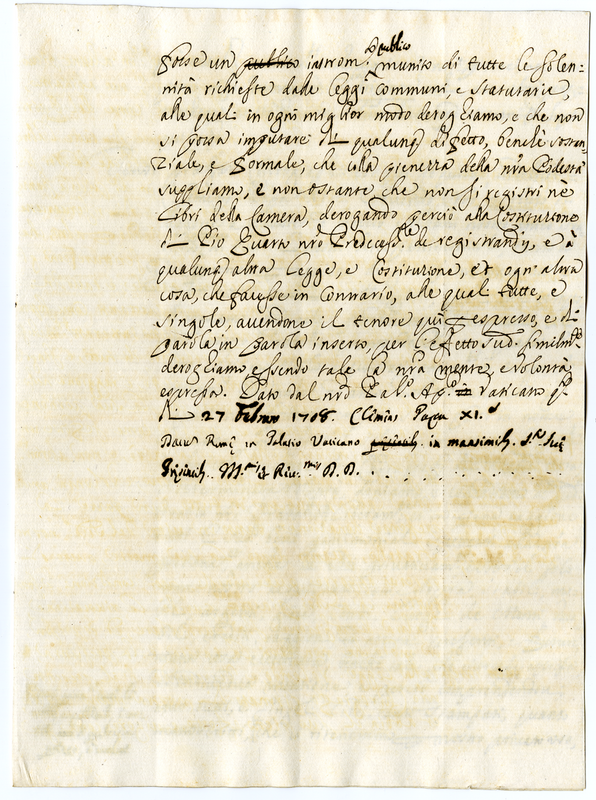 publico
fosse un publico instrom.to munito di tutte le solen-
nità richieste dalle leggi communi, e statutarie,
alle quali in ogni miglior modo deroghiamo, e che non
si possa imputare di qualunq difetto, benche sostan-
ziale, e formale, che colla pienezza della nra Podestà
suppliamo, e non ostante che non si registri ne
libri della Camera, derogando perciò alla Costituzione
di Pio Quarto nro Predecess.re de registrandis, e à
qualunq altra legge, e Costituzione, et ogn'altra
cosa, che facesse in contrario, alle quali tutte, e
singole, avendone il tenore qui espresso, e di
parola in parola inserto, per l'effetto sud.o similm.te
deroghiamo essendo tale la nra mente, e volontà
espressa. Dato dal nro Pal.o Ap.o in Vaticano q.o
di 27 Febraro 1708. Clemens Papa XI.
in Palatio Vaticano in
M. et D. D.